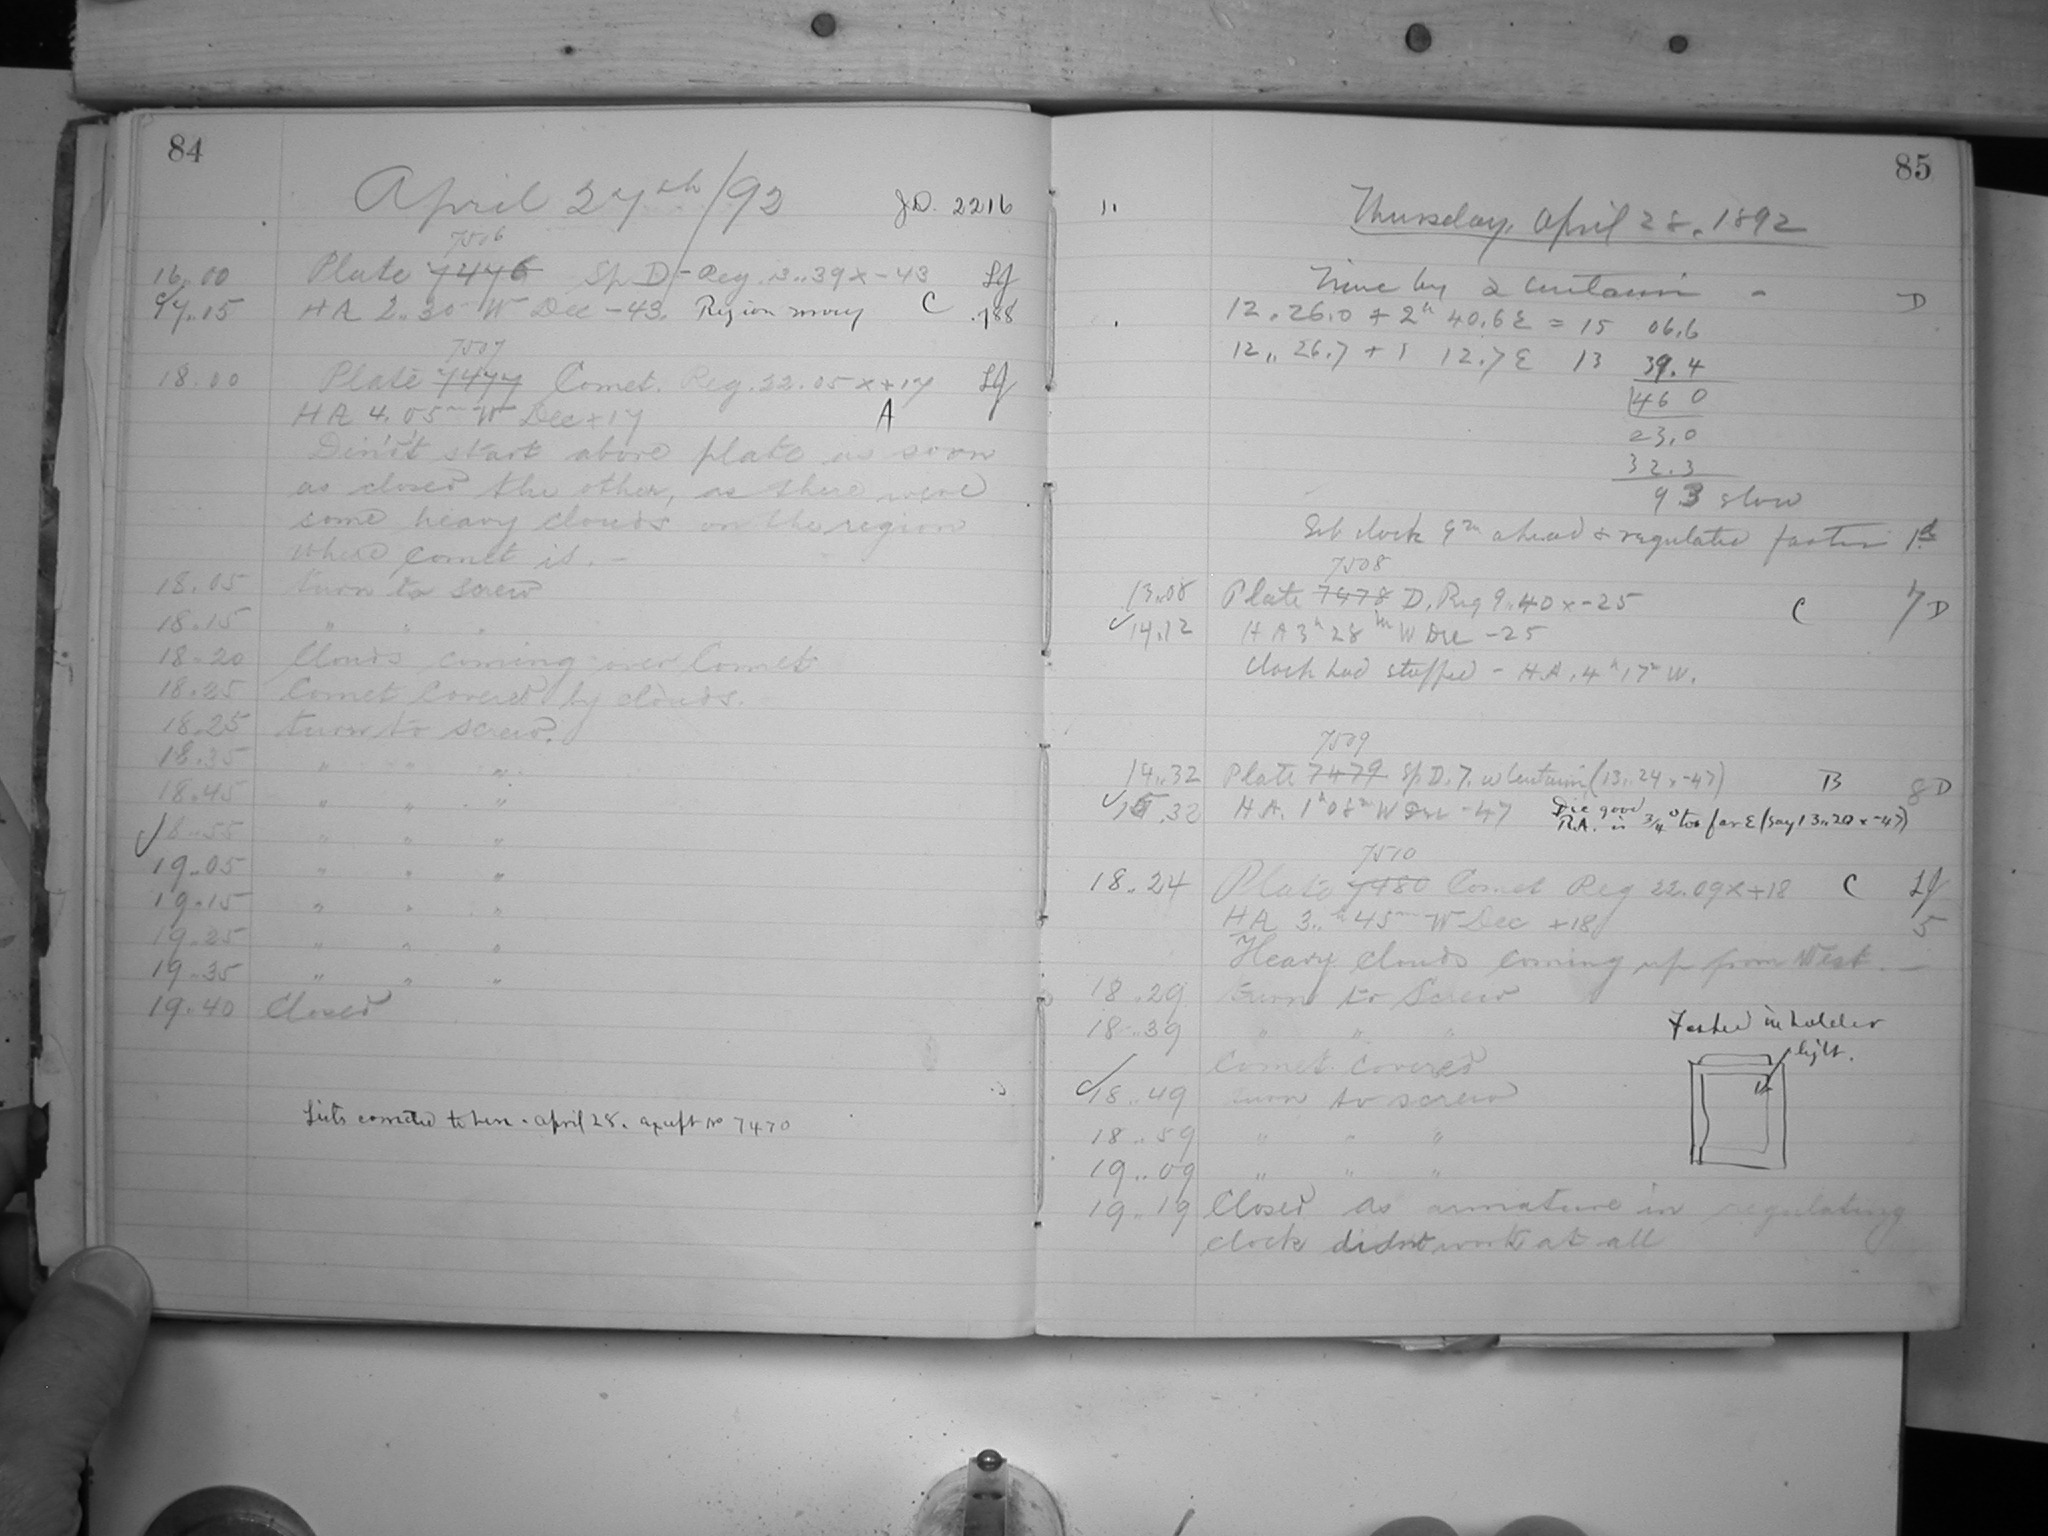 84
April 27th/92 J.D. 2216
7506
16.00 Plate 7476 Sp D - Reg. 13..39 x -43 LJ
17.15 HA 2..30 W Dec -43. Region C .788
7507
18.00 Plate 7477 Comet. Reg. 22.05 x +17 LJ
HA 4.05m W Dec +17 A
Didn't start above plate as soon
as closed the other, as there were
some heavy clouds on the region
where comet is. -
18.05 turn to screw
18.15 " " "
18.20 Clouds coming over Comet
18.25 Comet covered by clouds.
18.25 turn to screw.
18.35 " " "
18.45 " " "
18.55 " " "
19.05 " " "
19.15 " " "
19.25 " " "
19.35 " " "
19.40 Closed
Lists corrected to here - April 28. except No 7470
85
Thursday, April 28, 1892
Time by α Centauri - D
12.26.0 + 2h 40.6 E = 15 06.6
12..26.7 + 1 12.7 E 13 39.4
46 0
23.0
32.3
9 3 slow
Set clock 9m ahead & regulated faster 1d
7508
13.08 Plate 7478 D. Reg 9.40 x -25 C 7 D
14.12 HA 3h 28m W Dec -25
Clock had stopped - HA. 4h 17m W.
7509
14.32 Plate 7479 Sp D. 7. ω Centauri (13..24 x -47) B 8 D
15.32 HA. 1h 08m W Dec -47 Dec good
R.A. is 3/4° too far E (say 13..20 x -47)
7510
18..24 Plate 7480 Comet Reg 22.09 x +18 C LJ
HA 3..h 45m W Dec +18 5
Heavy clouds coming up from West. -
18.29 turn to Screw
18..39 " " "
Fogged in holder
light.
Comet covered
18..49 turn to screw
18..59 " " "
19..09 " " "
19..19 Closed as armature in regulating
clock didnt work at all